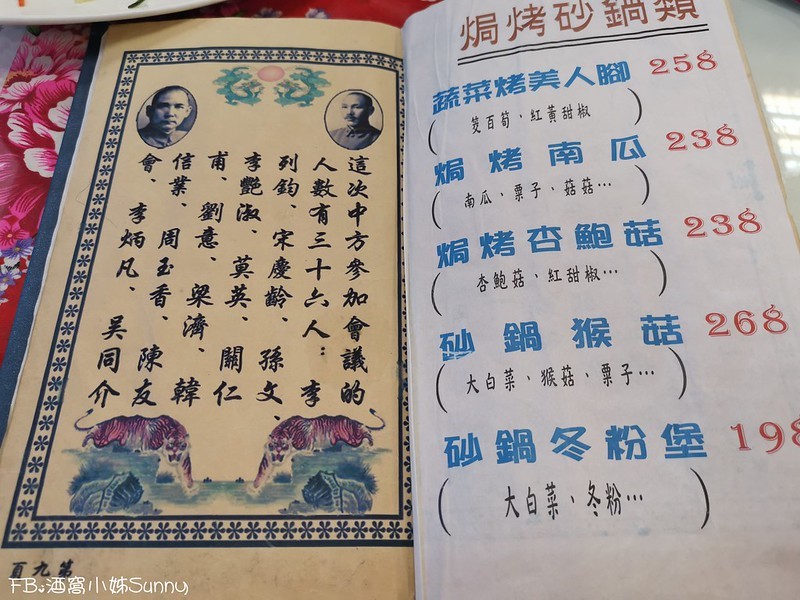 這次中方參加會議的
人數有三十六人：李
列鈞、宋慶齡、孫文、
李艷淑、莫英、關仁
甫、劉意、梁濟、韓
信業、周玉香、陳友
會、李炳凡、吳同介
第九頁
焗烤砂鍋類
蔬菜烤美人腳 258
(筊百筍、紅黃甜椒)
焗烤南瓜 238
(南瓜、栗子、菇菇…)
焗烤杏鮑菇 238
(杏鮑菇、紅甜椒…)
砂鍋猴菇 268
(大白菜、猴菇、栗子…)
砂鍋冬粉堡 198
(大白菜、冬粉…)
FB:酒窩小姊Sunny